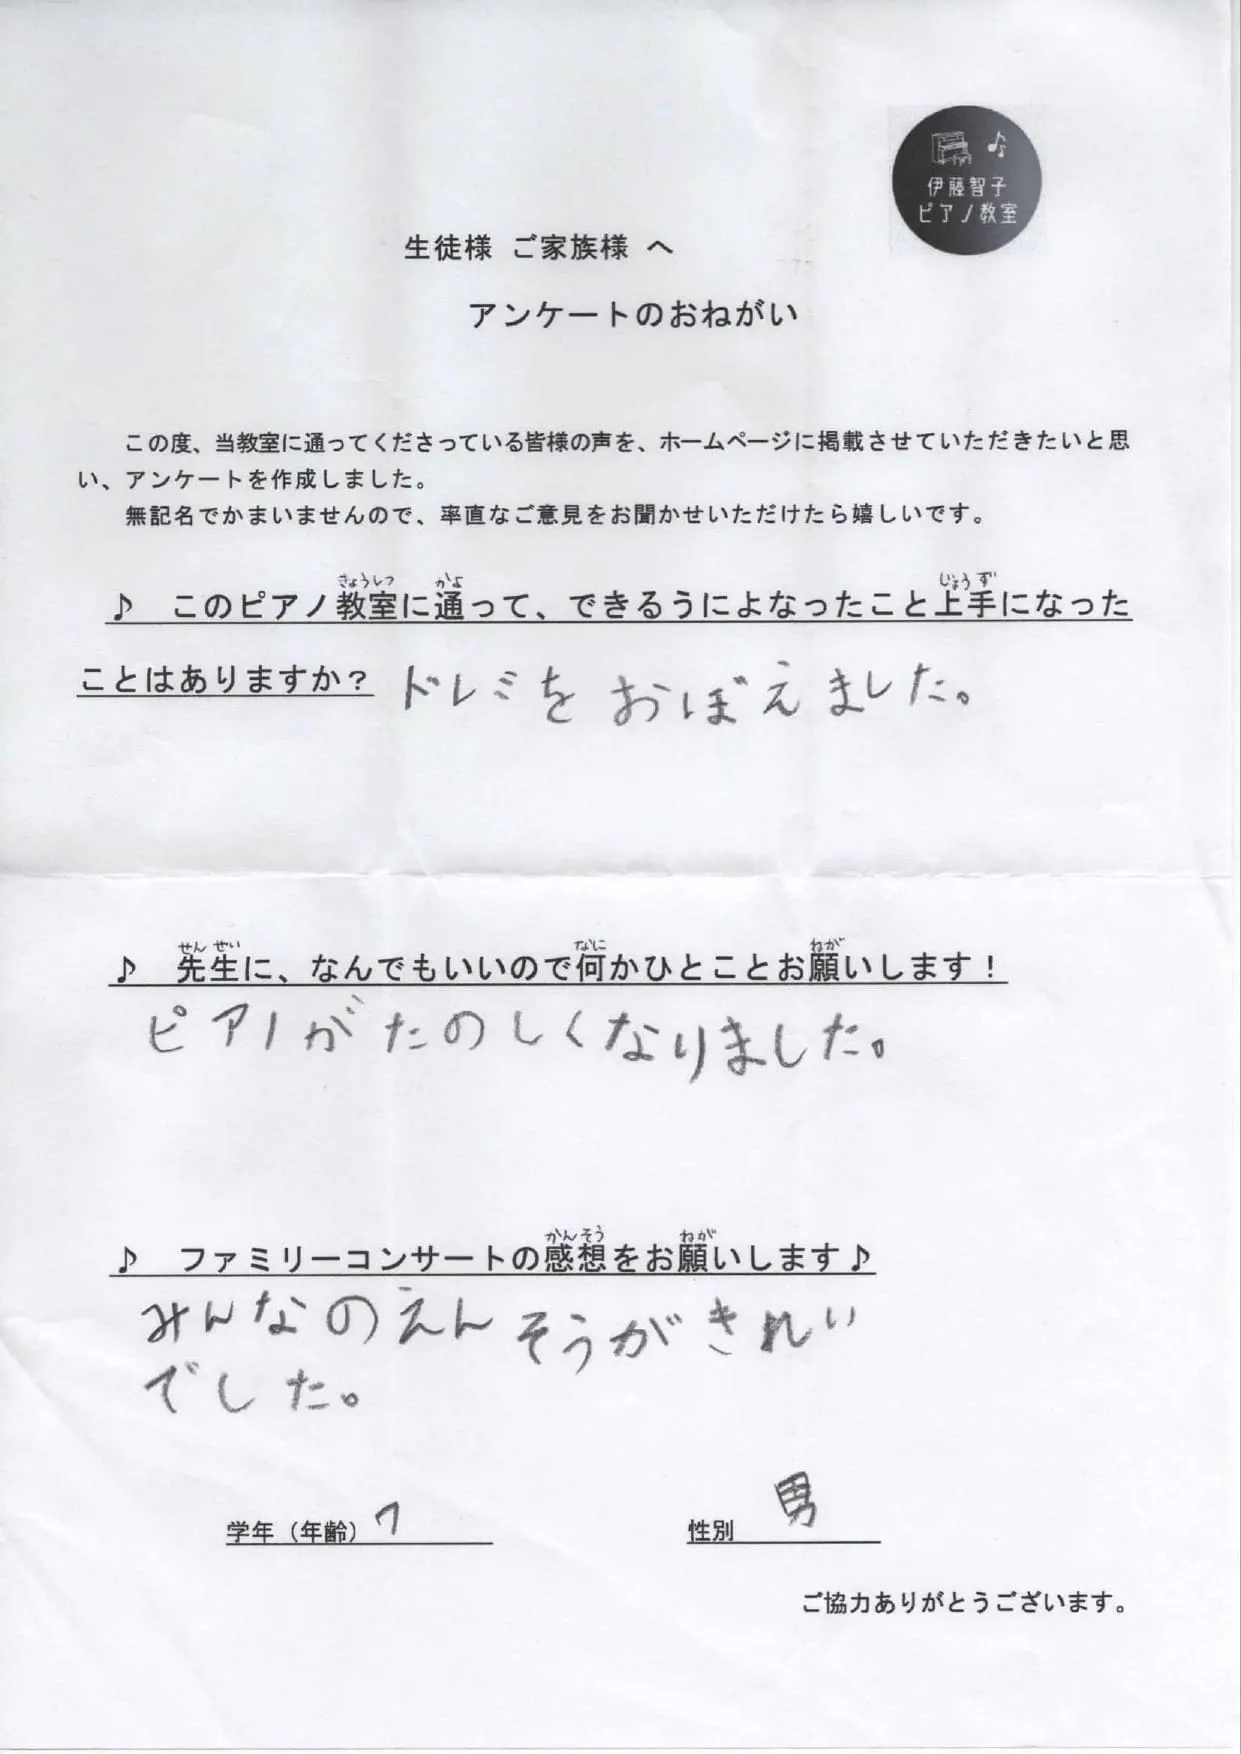 伊藤智子
ピアノ教室
生徒様 ご家族様 へ
アンケートのおねがい
この度、当教室に通ってくださっている皆様の声を、ホームページに掲載させていただきたいと思
い、アンケートを作成しました。
無記名でかまいませんので、率直なご意見をお聞かせいただけたら嬉しいです。
きょうしつ かよ じょうず
♪ このピアノ教室に通って、できるうによなったこと上手になった
ことはありますか？ ドレミを おぼえました。
せんせい なに ねが
♪ 先生に、なんでもいいので何かひとことお願いします！
ピアノがたのしくなりました。
かんそう ねが
♪ ファミリーコンサートの感想をお願いします♪
みんなのえんそうがきれい
でした。
学年（年齢） 7 性別 男
ご協力ありがとうございます。